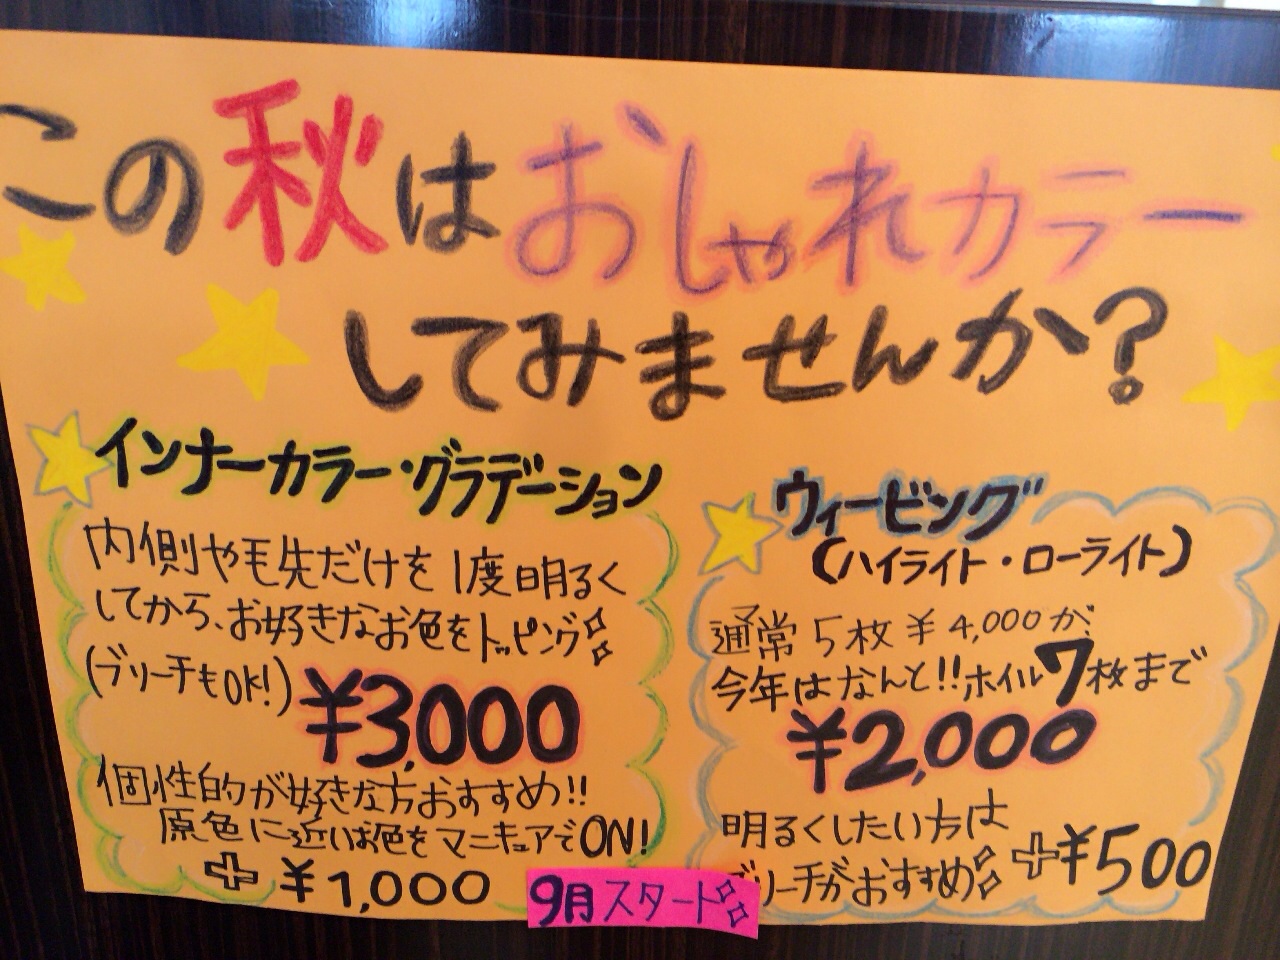 この秋はおしゃれカラー
してみませんか?
インナーカラー・グラデーション
内側や毛先だけを1度明るく
してから、お好きなお色をトッピング
(ブリーチもOK!) ¥3,000
個性的が好きな方おすすめ!!
原色に近いお色をマニキュアでON!
+¥1,000
ウィービング
(ハイライト・ローライト)
通常5枚¥4,000が
今年はなんと!!ホイル7枚まで
¥2,000
明るくしたい方は
ブリーチがおすすめ +¥500
9月スタート